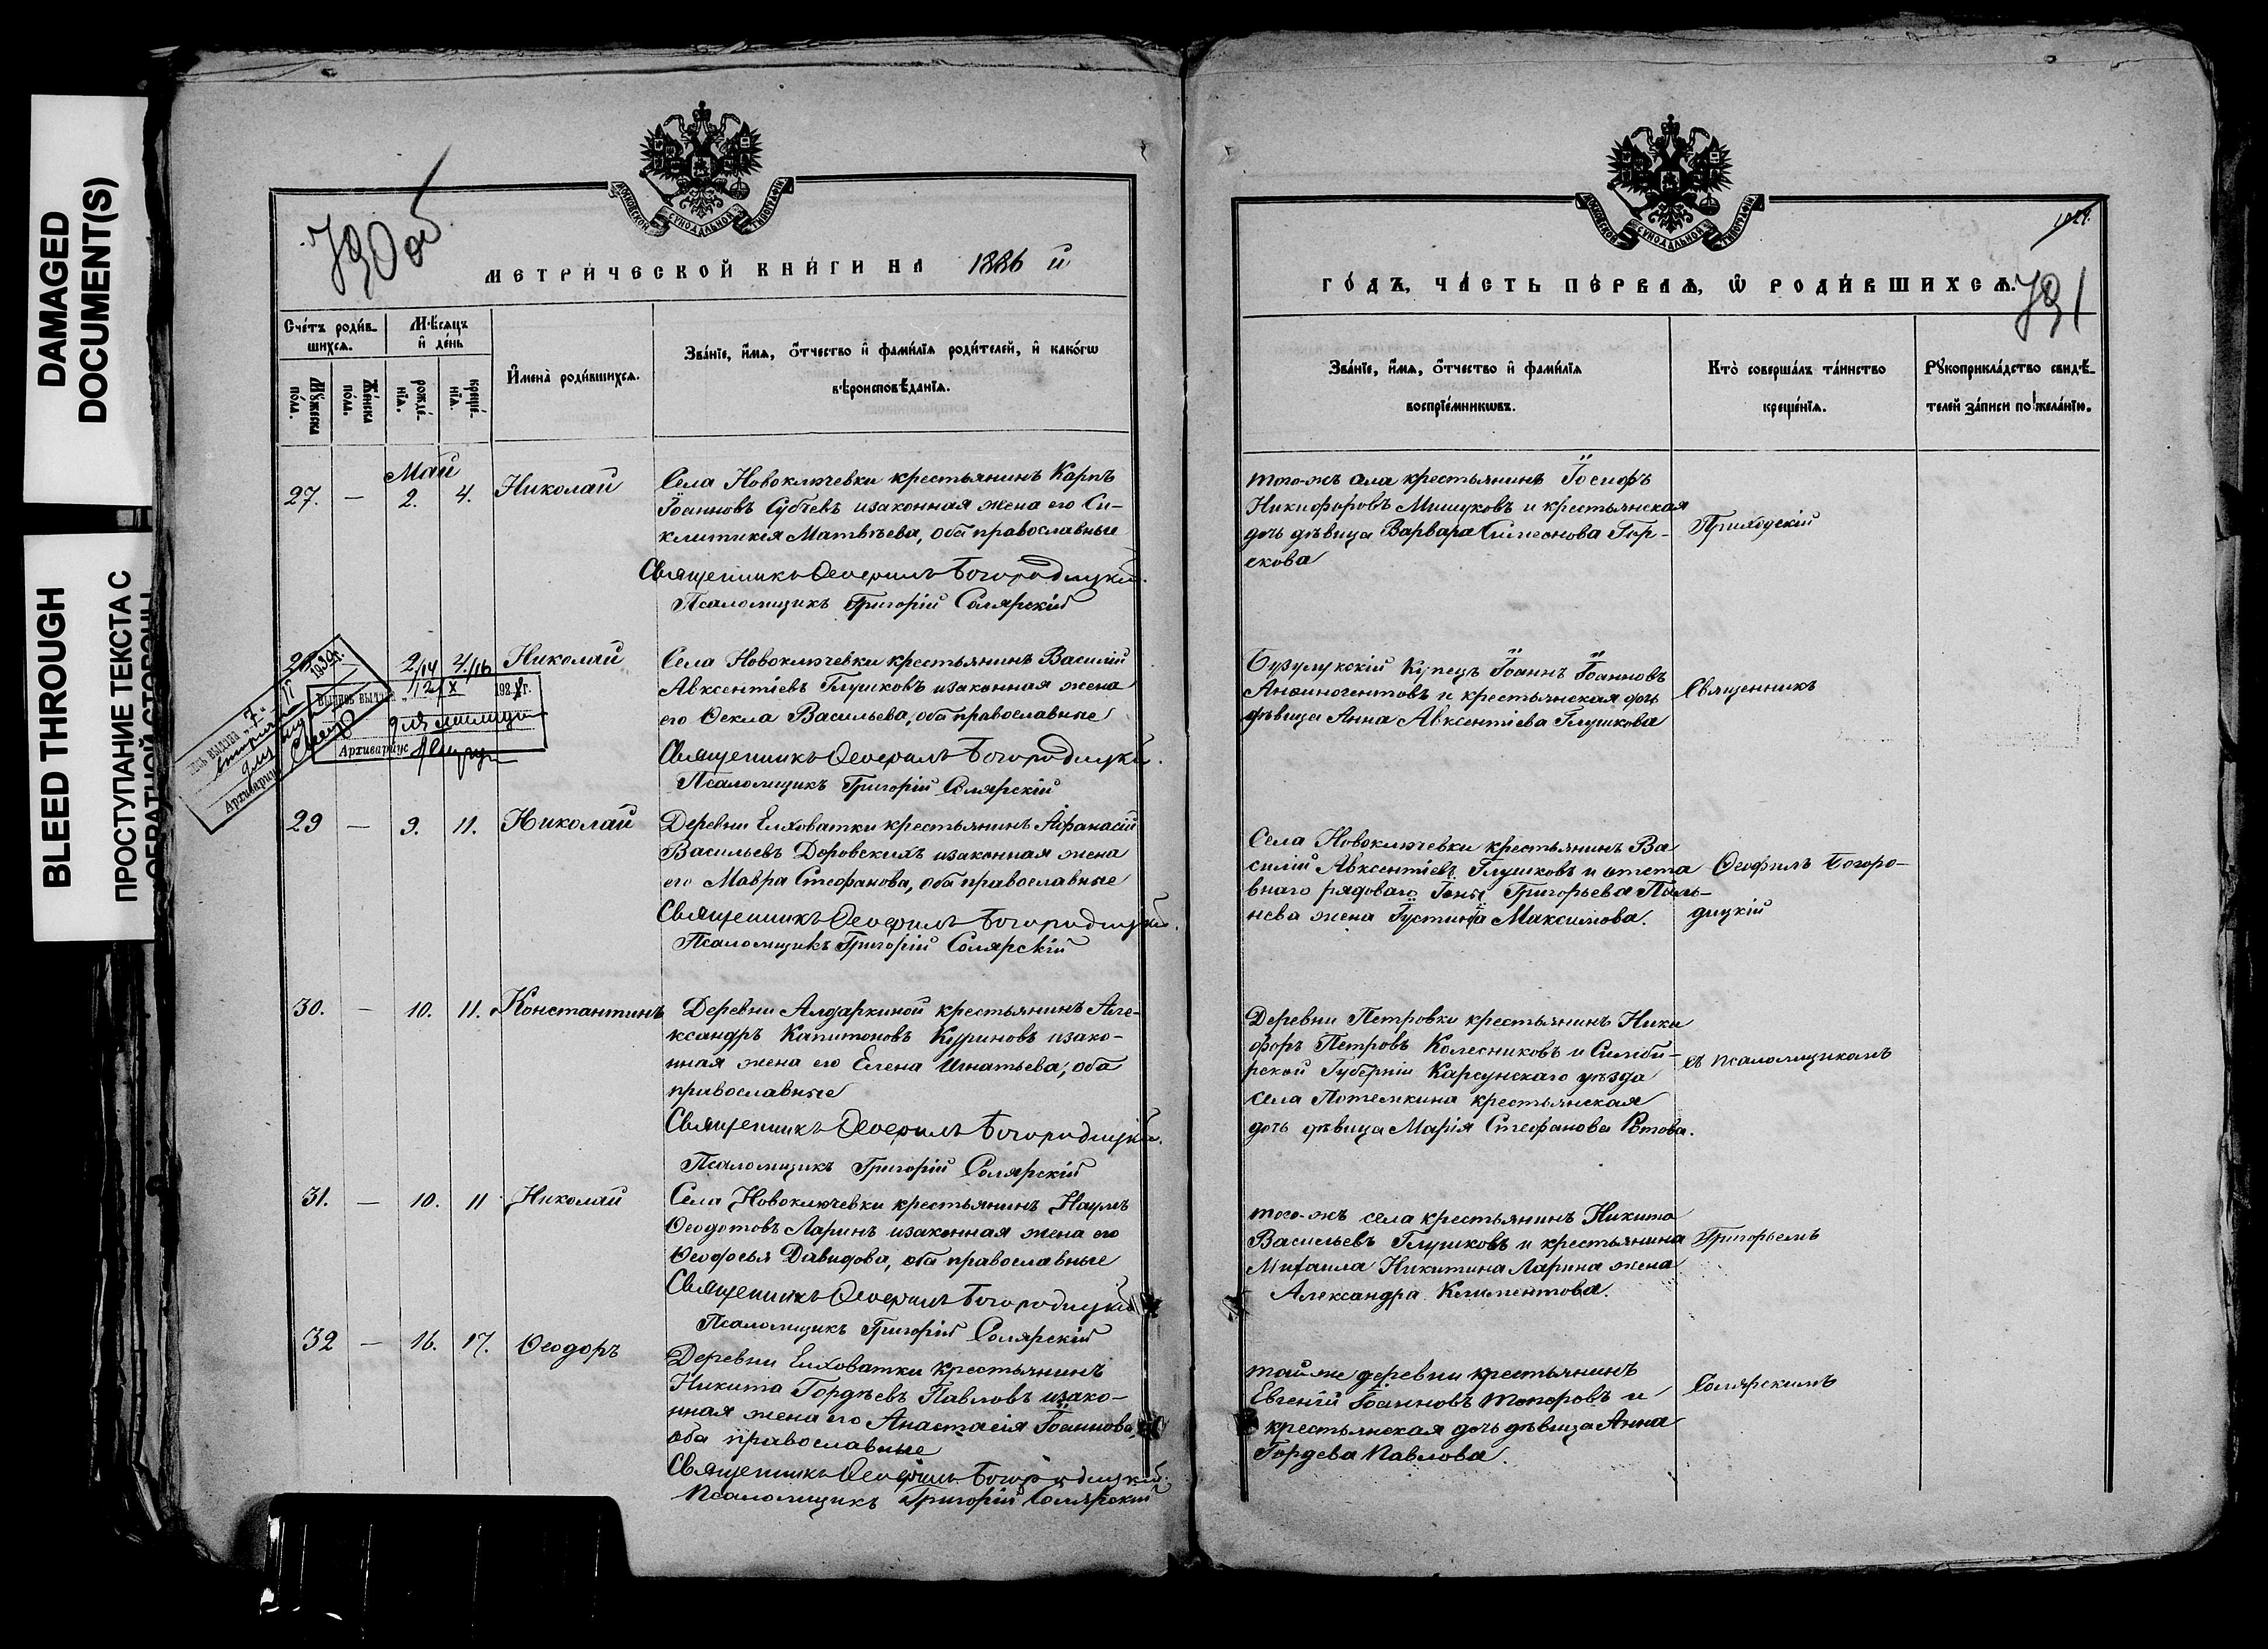 DAMAGED
DOCUMENT(S)
BLEED THROUGH
ПРОСТУПАНИЕ ТЕКСТА С
ОБРАТНОЙ СТОРОНЫ
МОСКОВСКОЙ СУНОДАЛЬНОЙ ТИПОГРАФІИ
790 об
МЕТРИЧЕСКОЙ КНИГИ НА 1886 й
Счетъ родив-
шихся.
Мужеска
пола.
Женска
пола.
Мѣсяцъ
и день
рожде-
нія.
креще-
нія.
Имена родившихся.
Званіе, имя, отчество и фамилія родителей, и какогѡ
вѣроисповѣданія.
Май
27. — 2. 4. Николай
Села Новоключевки крестьянинъ Карпъ
Іоанновъ Субчевъ изаконная жена его Си-
клитикія Матвѣева, оба православные
Священникъ Ѳеофилъ Богородицкій.
Псаломщикъ Григорій Солярскій
28 2/14 4./16 Николай
Села Новоключевки крестьянинъ Василій
Авксентіевъ Глушковъ изаконная жена
его Ѳекла Васильева, оба православные
Священникъ Ѳеофилъ Богородицкій.
Псаломщикъ Григорій Солярскій
Выпись выдана 12/X 1928г.
для милиции
Архивариус
1939г.
Архивариус
29 — 9. 11. Николай
Деревни Елховатки крестьянинъ Аѳанасій
Васильевъ Доровскихъ изаконная жена
его Мавра Стефанова, оба православные
Священникъ Ѳеофилъ Богородицкій.
Псаломщикъ Григорій Солярскій
30. — 10. 11. Константинъ
Деревни Алдаркиной крестьянинъ Але-
ксандръ Капитоновъ Куриновъ изако-
нная жена его Елена Игнатьева, оба
православные
Священникъ Ѳеофилъ Богородицкій.
Псаломщикъ Григорій Солярскій
31. — 10. 11 Николай
Села Новоключевки крестьянинъ Наумъ
Ѳеодотовъ Ларинъ изаконная жена его
Ѳеодосья Давидова, оба православные
Священникъ Ѳеофилъ Богородицкій
Псаломщикъ Григорій Солярскій
32 — 16. 17. Ѳеодоръ
Деревни Елховатки крестьянинъ
Никита Гордѣевъ Павловъ изако-
нная жена его Анастасія Іоаннова,
оба православные
Священникъ Ѳеофилъ Богородицкій.
Псаломщикъ Григорій Солярскій
МОСКОВСКОЙ СУНОДАЛЬНОЙ ТИПОГРАФІИ
791
ГОДЪ, ЧАСТЬ ПЕРВАЯ, Ѡ РОДИВШИХСЯ.
Званіе, имя, отчество и фамилія
воспріемникѡвъ.
Кто совершалъ таинство
крещенія.
Рукоприкладство свидѣ-
телей записи по желанію.
того-жъ села крестьянинъ Іосифъ
Никифоровъ Мишуковъ и крестьянская
дочь дѣвица Варвара Симеонова Гор-
скова
Бузулукскій Купецъ Іоаннъ Іоанновъ
Анѳиногентовъ и крестьянская дочь
дѣвица Анна Авксентіева Глушкова
Села Новоключевки крестьянинъ Ва
силій Авксентіевъ Глушковъ и отста
внаго рядоваго Іоны Григорьева Поль-
нева жена Іустина Максимова.
Деревни Петровки крестьянинъ Ники
форъ Петровъ Колесниковъ и Симби-
рской Губерніи Карсунскаго уѣзда
села Потемкина крестьянская
дочь дѣвица Марія Стефанова Ротова.
того-жъ села крестьянинъ Никита
Васильевъ Глушковъ и крестьянина
Михаила Никитина Ларина жена
Александра Климентова.
той же деревни крестьянинъ
Евгеній Іоанновъ Топоровъ и
крестьянская дочь дѣвица Анна
Гордева Павлова.
Приходскій
Священникъ
Ѳеофилъ Богоро-
дицкій
съ псаломщикомъ
Григорьемъ
Солярскимъ